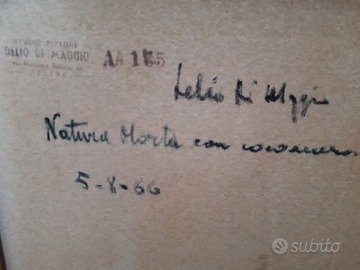 STUDIO PITTORA
DELIO DI MAGGIO
AA 155
Delio Di Maggio
Natura Morta con cocomero
5-8-66
subito